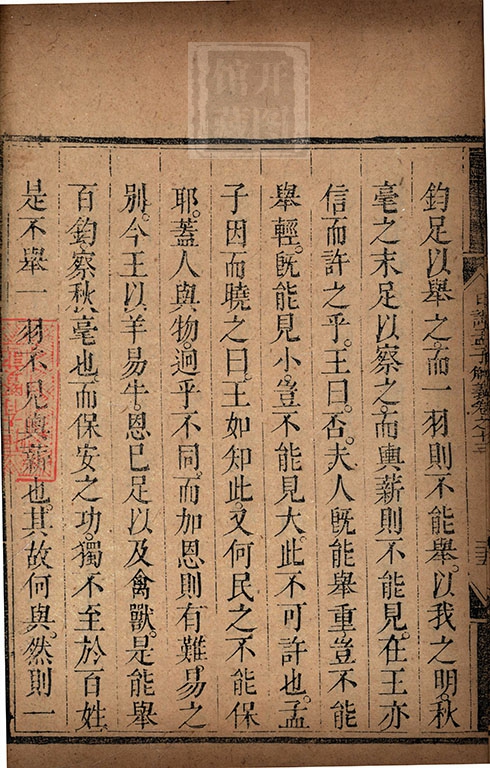 鈞足以舉之。而一羽則不能舉。以我之明。秋
毫之末足以察之。而輿薪則不能見。在王亦
信而許之乎。王曰。否。夫人既能舉重豈不能
舉輕。既能見小。豈不能見大。此不可許也。孟
子因而曉之曰。王如知此。又何民之不能保
耶。蓋人與物。迥乎不同。而加恩則有難易之
別。今王以羊易牛。恩已足以及禽獸。是能舉
百鈞察秋毫也。而保安之功。獨不至於百姓
是不舉一羽不見輿薪也。其故何與。然則一